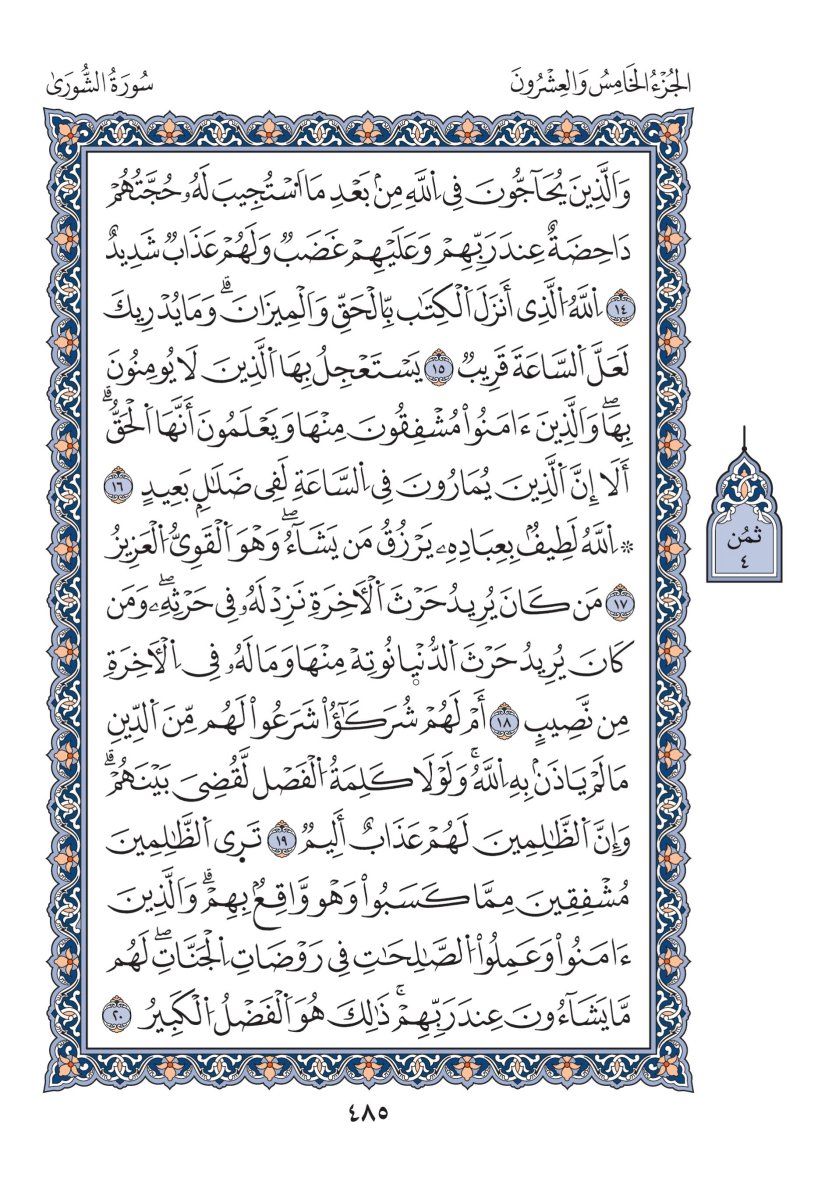 الجُزْءُ الخَامِسُ وَالعِشْرُونَ
سُورَةُ الشُّورَىٰ
وَالَّذِينَ يُحَآجُّونَ فِي اِللَّهِ مِنۢ بَعْدِ مَا اَسْتُجِيبَ لَهُۥ حُجَّتُهُمْ
دَاحِضَةٌ عِندَ رَبِّهِمْ وَعَلَيْهِمْ غَضَبٌ وَلَهُمْ عَذَابٌ شَدِيدٌ
١٤ اِللَّهُ اُلَّذِي أَنزَلَ اَلْكِتَٰب بِّالْحَقِّ وَالْمِيزَانَۗ وَمَا يُدْرِيكَ
لَعَلَّ اَلسَّاعَةَ قَرِيبٌ ١٥ يَسْتَعْجِلُ بِهَا اَلَّذِينَ لَا يُومِنُونَ
بِهَاۖ وَالَّذِينَ ءَامَنُواْ مُشْفِقُونَ مِنْهَا وَيَعْلَمُونَ أَنَّهَا اَلْحَقُّۗ
أَلَا إِنَّ اَلَّذِينَ يُمَارُونَ فِي اِلسَّاعَةِ لَفِي ضَلَٰلِۭ بَعِيدٍ ١٦
۞ اِللَّهُ لَطِيفُۢ بِعِبَادِهِۦ يَرْزُقُ مَن يَشَآءُۖ وَهْوَ اَلْقَوِيُّ اُلْعَزِيزُ
١٧ مَن كَانَ يُرِيدُ حَرْثَ اَلْأٓخِرَةِ نَزِدْ لَهُۥ فِي حَرْثِهِۦۖ وَمَن
كَانَ يُرِيدُ حَرْثَ اَلدُّنْيَا نُوتِهْ مِنْهَا وَمَا لَهُۥ فِي اِلْأٓخِرَةِ
مِن نَّصِيبٍ ١٨ أَمْ لَهُمْ شُرَكَٰٓؤُاْ شَرَعُواْ لَهُم مِّنَ اَلدِّينِ
مَا لَمْ يَاذَنۢ بِهِ اِللَّهُۚ وَلَوْلَا كَلِمَةُ اُلْفَصْل لَّقُضِيَ بَيْنَهُمْۗ
وَإِنَّ اَلظَّٰلِمِينَ لَهُمْ عَذَابٌ أَلِيمٌ ١٩ تَرَى اَلظَّٰلِمِينَ
مُشْفِقِينَ مِمَّا كَسَبُواْ وَهْو وَّاقِعُۢ بِهِمْۗ وَالَّذِينَ
ءَامَنُواْ وَعَمِلُواْ اُلصَّٰلِحَٰتِ فِي رَوْضَاتِ اِلْجَنَّاتِۖ لَهُم
مَّا يَشَآءُونَ عِندَ رَبِّهِمْۚ ذَٰلِكَ هُوَ اَلْفَضْلُ اُلْكَبِيرُ ٢٠
ثُمُن
٤
٤٨٥